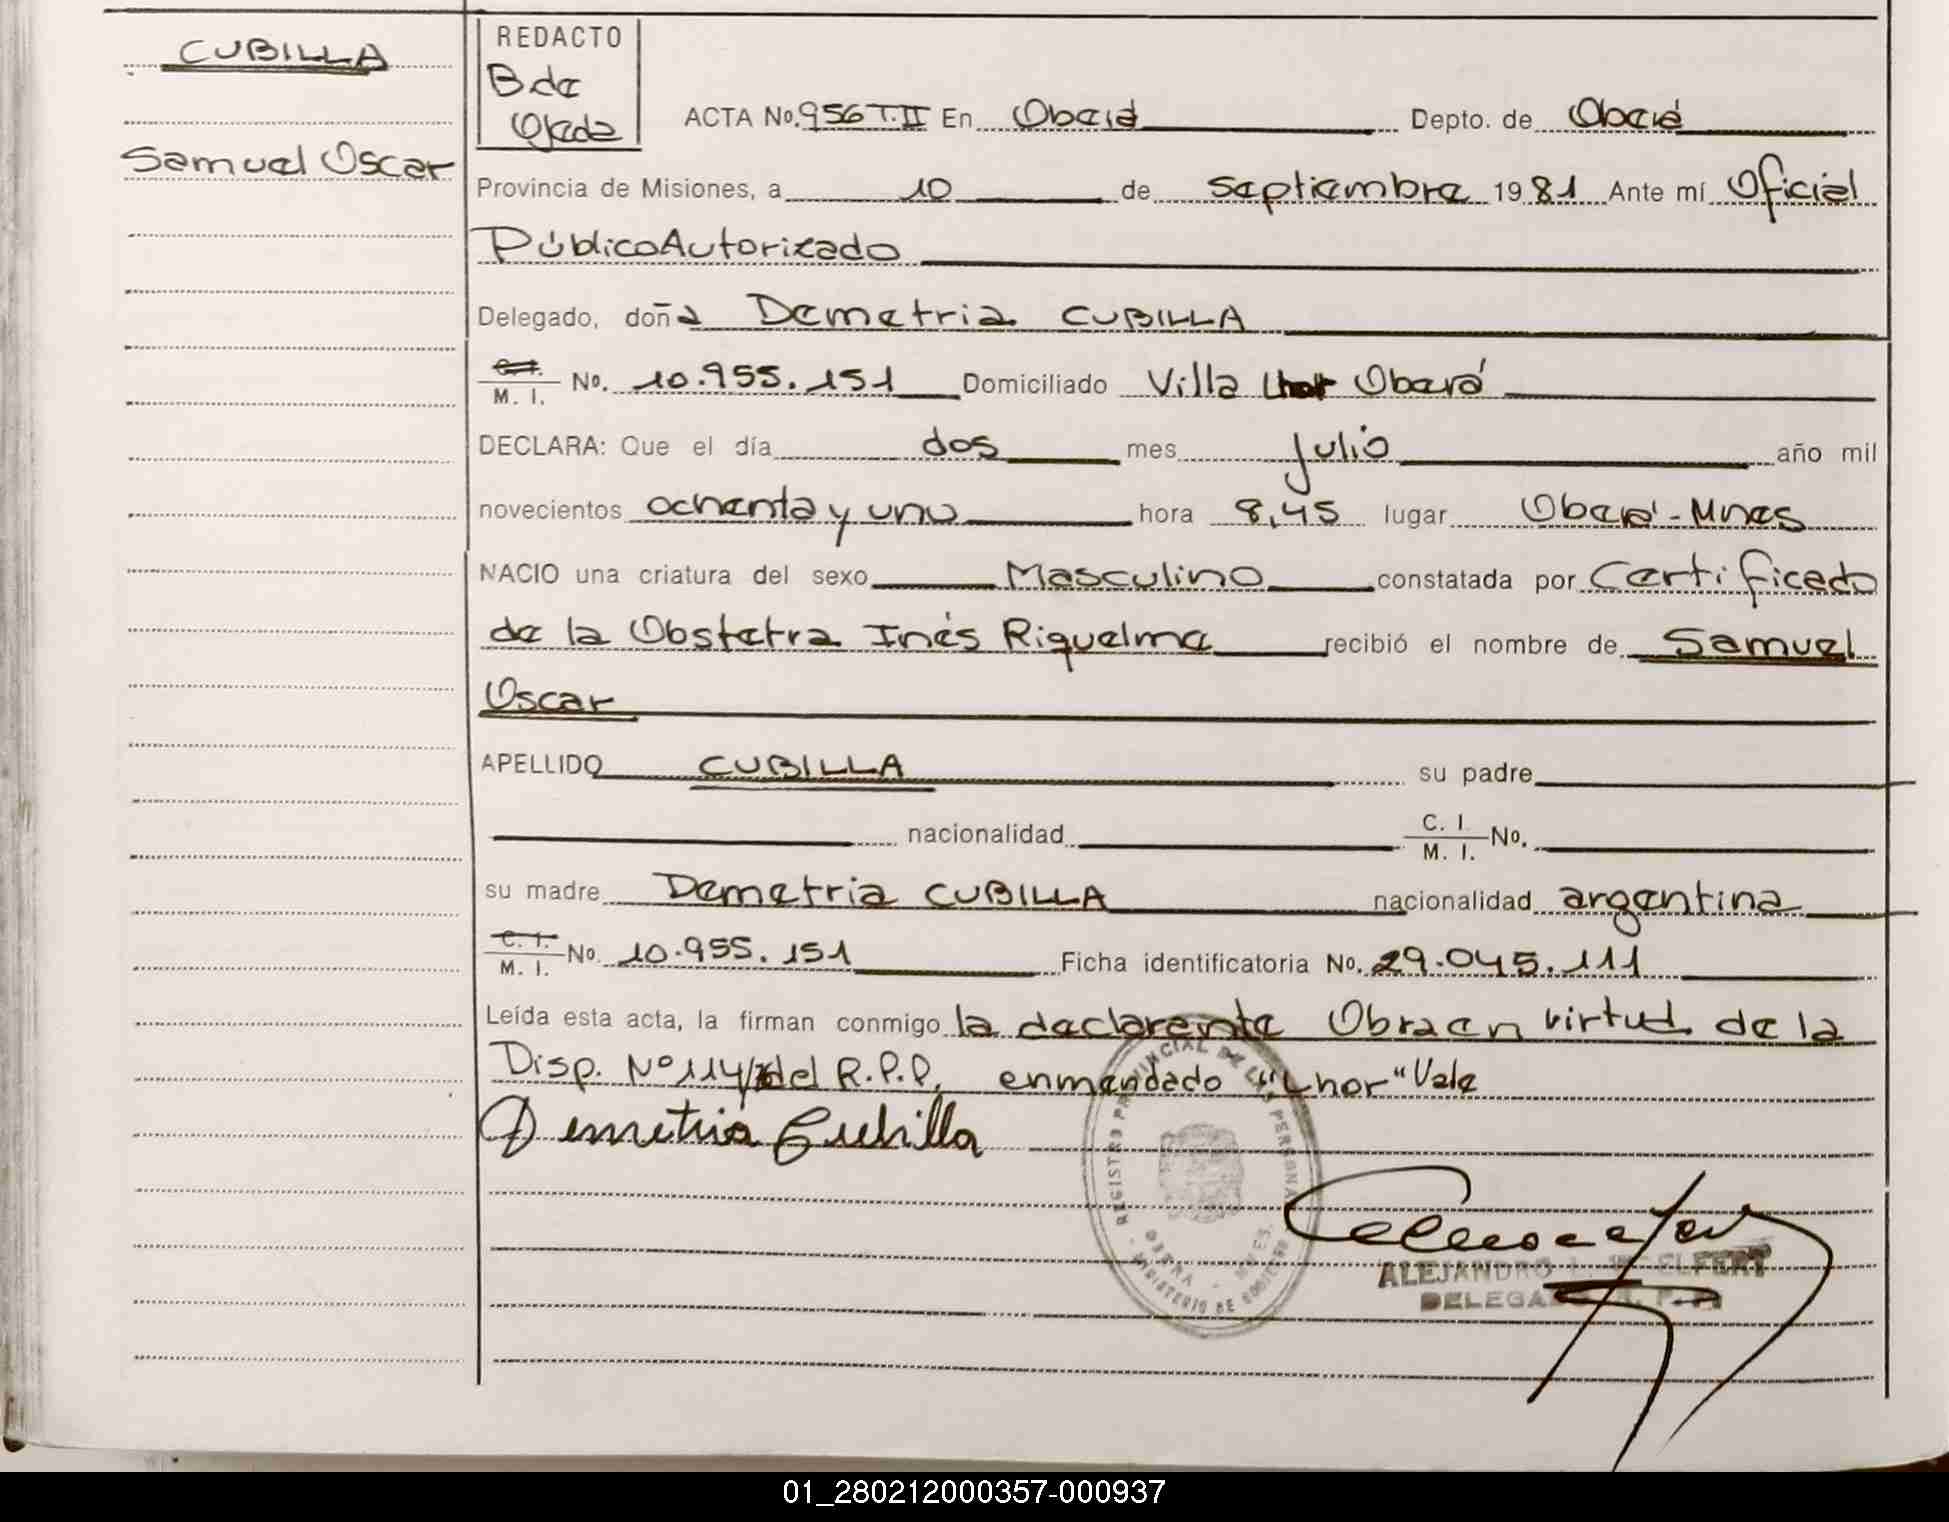 CUBILLA
Samuel Oscar
REDACTO
B.de
Ojeda
ACTA No. 956 T.II En Oberá Depto. de Oberá
Provincia de Misiones, a 10 de septiembre 1981 Ante mí Oficial
Público Autorizado
Delegado, doña Demetria CUBILLA
C. I.
M. I. No. 10.955.151 Domiciliado Villa Lhor Oberá
DECLARA: Que el día dos mes julio año mil
novecientos ochenta y uno hora 8,45 lugar Oberá - Mnes
NACIO una criatura del sexo Masculino constatada por Certificado
de la Obstetra Inés Riquelme recibió el nombre de Samuel
Oscar
APELLIDO CUBILLA su padre
nacionalidad C. I.
M. I. No.
su madre Demetria CUBILLA nacionalidad argentina
C. I.
M. I. No. 10.955.151 Ficha identificatoria No. 29.045.111
Leída esta acta, la firman conmigo la declarente Obra en virtud de la
Disp. Nº 114 del R.P.P. enmendado "Lhor" Vale
Demetria Cubilla
REGISTRO PROVINCIAL DE LAS PERSONAS
OBERA - MNES.
MINISTERIO DE GOBIERNO
ALEJANDRO
DELEGADO R. P. P.
01_280212000357-000937